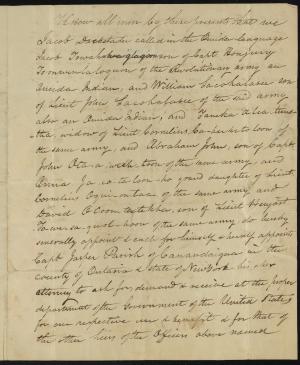 Know all men by these presents that we
Jacob Dockstader called in the Oneida Language
Jacob son of Capt. Honyery
of the Revolutionary army, an
Oneida Indian, and William son
of Lieut John of the said army
also an Oneida Indian, and
the widow of Lieut Cornelius of
the same army, and Abraham John, son of Capt.
John of the same army and
Anna daughter of Lieut.
Cornelius of the same army and
David son of Lieut
of the same army do hereby
severally appoint & each for himself & herself appoints
Capt. Jasper Parish of Canandaigua in the
county of Ontario & State of New York his & her
attorney to ask for demand & receive at the proper
department of the Government of the United States
for our respective use & benefit & for that of
the other heirs of the Officers above named